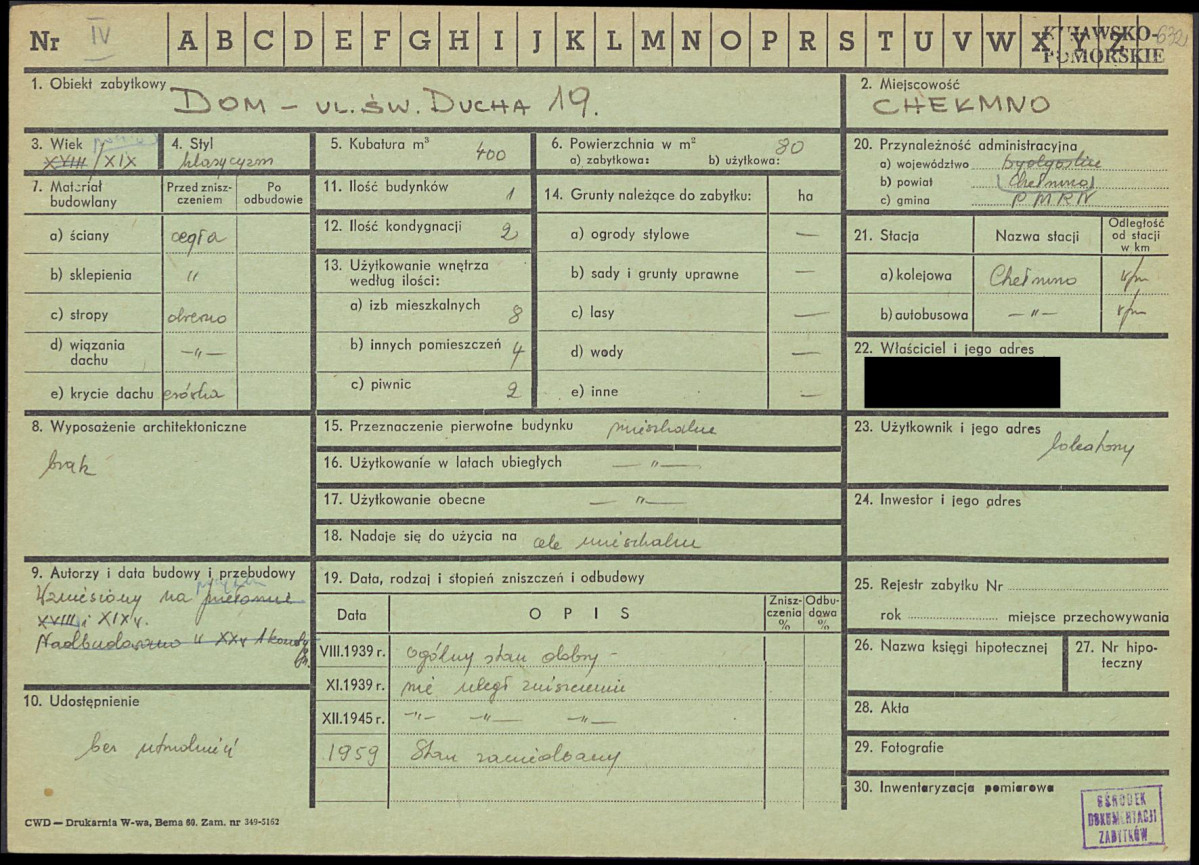 Nr IV A B C D E F G H I J K L M N O P R S T U V W X Y Z 632
KUJAWSKO-
POMORSKIE
1. Obiekt zabytkowy DOM – UL. ŚW. DUCHA 19.
2. Miejscowość
CHEŁMNO
3. Wiek
XVIII/XIX
4. Styl
klasycyzm
5. Kubatura m³ 400
6. Powierzchnia w m² 80
a) zabytkowa: b) użytkowa:
7. Materiał budowlany
Przed zniszczeniem
Po odbudowie
a) ściany cegła
b) sklepienia "
c) stropy drewno
d) wiązania dachu –"–
e) krycie dachu
8. Wyposażenie architektoniczne
brak
9. Autorzy i data budowy i przebudowy
Wzniesiony na przełomie
XVIII i XIX w.
10. Udostępnienie
bez utrudnień
11. Ilość budynków 1
12. Ilość kondygnacji 2
13. Użytkowanie wnętrza według ilości:
a) izb mieszkalnych 8
b) innych pomieszczeń 4
c) piwnic 2
14. Grunty należące do zabytku: ha
a) ogrody stylowe —
b) sady i grunty uprawne —
c) lasy —
d) wody —
e) inne —
15. Przeznaczenie pierwotne budynku mieszkalne
16. Użytkowanie w latach ubiegłych —"—
17. Użytkowanie obecne —"—
18. Nadaje się do użycia na cele mieszkalne
19. Data, rodzaj i stopień zniszczeń i odbudowy
Data
OPIS
Zniszczenia %
Odbudowa %
VIII.1939 r. ogólny stan dobry –
XI.1939 r. nie uległ zniszczeniu
XII.1945 r. –"– –"– –"–
1959 Stan zaniedbany
20. Przynależność administracyjna
a) województwo bydgoskie
b) powiat (Chełmno)
c) gmina PMRN
21. Stacja
Nazwa stacji
Odległość od stacji w km
a) kolejowa Chełmno
b) autobusowa –"–
22. Właściciel i jego adres
23. Użytkownik i jego adres
lokatorzy
24. Inwestor i jego adres
25. Rejestr zabytku Nr
rok miejsce przechowywania
26. Nazwa księgi hipotecznej
27. Nr hipoteczny
28. Akta
29. Fotografie
30. Inwentaryzacja pomiarowa
OŚRODEK
DOKUMENTACJI
ZABYTKÓW
CWD — Drukarnia W-wa, Bema 60. Zam. nr 349-5162